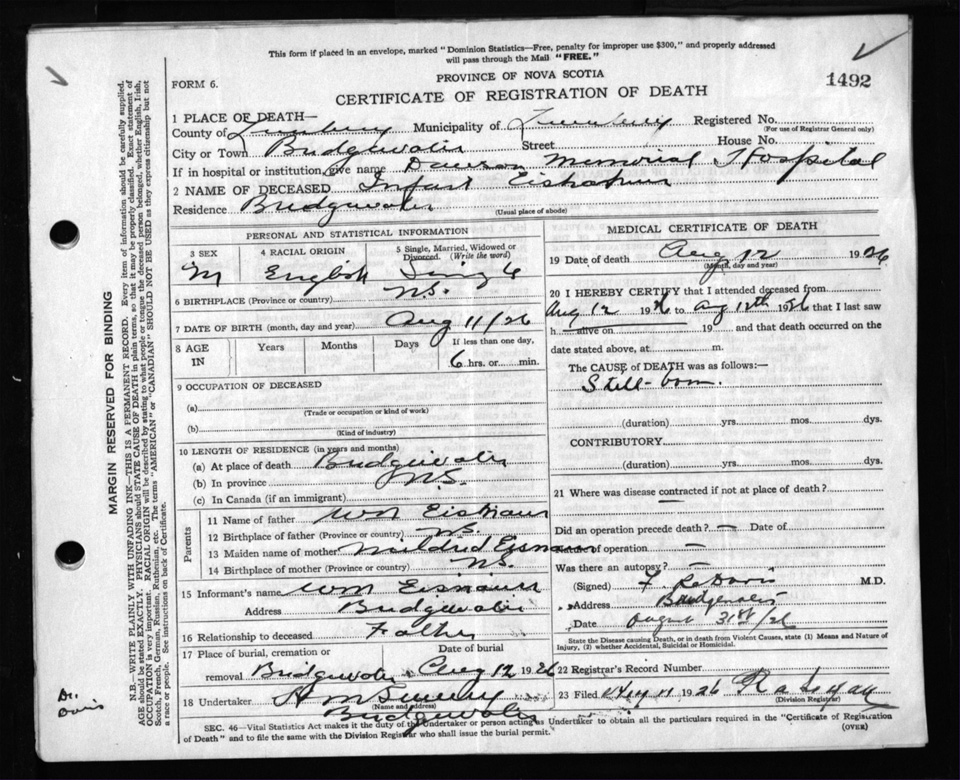 This form if placed in an envelope, marked "Dominion Statistics—Free, penalty for improper use $300," and properly addressed
will pass through the Mail "FREE."
FORM 6.
PROVINCE OF NOVA SCOTIA
1492
CERTIFICATE OF REGISTRATION OF DEATH
1 PLACE OF DEATH—
County of Lunenburg Municipality of Lunenburg Registered No.
(For use of Registrar General only)
City or Town Bridgewater Street House No.
If in hospital or institution, give name Dawson Memorial Hospital
2 NAME OF DECEASED Infant
Residence Bridgewater
(Usual place of abode)
PERSONAL AND STATISTICAL INFORMATION
3 SEX M
4 RACIAL ORIGIN English
5 Single, Married, Widowed or Divorced. (Write the word) Single
6 BIRTHPLACE (Province or country) N.S.
7 DATE OF BIRTH (month, day and year) Aug 11/26
8 AGE IN Years Months Days If less than one day, 6 hrs. or min.
9 OCCUPATION OF DECEASED
(a)
(Trade or occupation or kind of work)
(b)
(Kind of industry)
10 LENGTH OF RESIDENCE (in years and months)
(a) At place of death Bridgewater
(b) In province N.S.
(c) In Canada (if an immigrant)
Parents
11 Name of father Wm
12 Birthplace of father (Province or country) N.S.
13 Maiden name of mother Mildred
14 Birthplace of mother (Province or country) N.S.
15 Informant's name Wm
Address Bridgewater
16 Relationship to deceased Father
17 Place of burial, cremation or Date of burial
removal Bridgewater Aug 12 1926
18 Undertaker
(Name and address)
Bridgewater
MEDICAL CERTIFICATE OF DEATH
19 Date of death Aug 12 1926
(Month, day and year)
20 I HEREBY CERTIFY that I attended deceased from
Aug 12 1926 to Aug 12th 1926 that I last saw
h alive on 19 and that death occurred on the
date stated above, at m.
The CAUSE of DEATH was as follows:—
Still-born.
(duration) yrs. mos. dys.
CONTRIBUTORY
(duration) yrs. mos. dys.
21 Where was disease contracted if not at place of death?
Did an operation precede death? — Date of
of operation —
Was there an autopsy? —
(Signed) Davis M.D.
Address Bridgewater
Date August 31st/26
State the Disease causing Death, or in death from Violent Causes, state (1) Means and Nature of
Injury, (2) whether Accidental, Suicidal or Homicidal.
22 Registrar's Record Number
23 Filed 11 1926
(Division Registrar)
SEC. 46—Vital Statistics Act makes it the duty of the Undertaker or person acting as Undertaker to obtain all the particulars required in the "Certificate of Registration
of Death" and to file the same with the Division Registrar who shall issue the burial permit.
(OVER)
MARGIN RESERVED FOR BINDING
N.B.—WRITE PLAINLY WITH UNFADING INK—THIS IS A PERMANENT RECORD. Every item of information should be carefully supplied.
AGE should be stated EXACTLY. PHYSICIANS should STATE CAUSE OF DEATH in plain terms, so that it may be properly classified. Exact statement of
OCCUPATION is very important. RACIAL ORIGIN will be described by stating to what people or tongue the deceased person belonged, whether English, Irish,
Scotch, French, German, Russian, Ruthenian, etc. The terms "AMERICAN" or "CANADIAN" SHOULD NOT BE USED as they express citizenship but not
a race or people. See instructions on back of Certificate.
Dr.
Davis